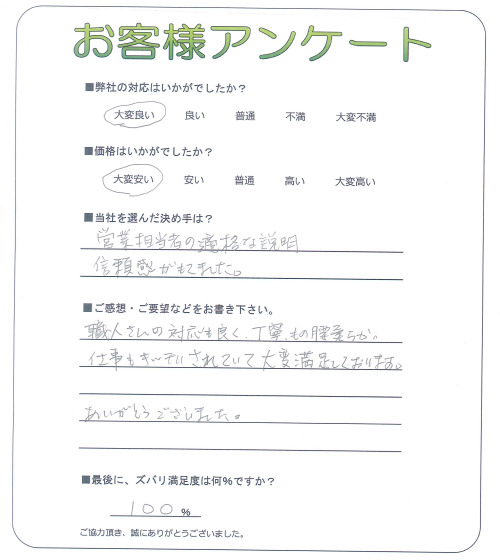 お客様アンケート
■弊社の対応はいかがでしたか？
大変良い 良い 普通 不満 大変不満
■価格はいかがでしたか？
大変安い 安い 普通 高い 大変高い
■当社を選んだ決め手は？
営業担当者の適格な説明
信頼感がもてました。
■ご感想・ご要望などをお書き下さい。
職人さんの対応も良く、丁寧、もの腰柔らか。
仕事もキッチリされていて大変満足しております。
ありがとうございました。
■最後に、ズバリ満足度は何％ですか？
100 %
ご協力頂き、誠にありがとうございました。